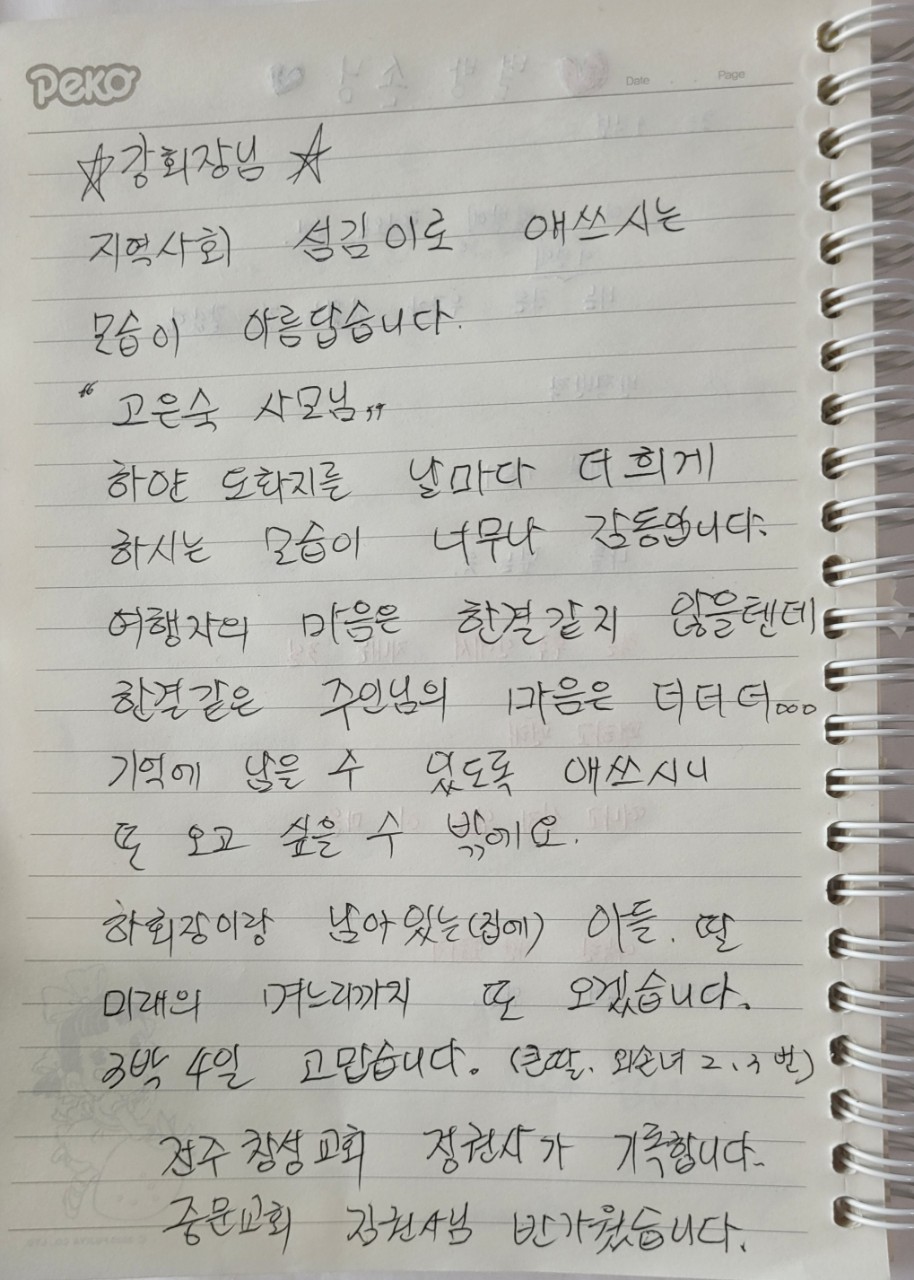 Peko
Date . . Page
☆강회장님 ☆
지역사회 섬김이로 애쓰시는
모습이 아름답습니다.
"고은숙 사모님"
하얀 도화지를 날마다 더 희게
하시는 모습이 너무나 감동입니다.
여행자의 마음은 한결같지 않을텐데
한결같은 주인님의 마음은 더더더...
기억에 남을 수 있도록 애쓰시니
또 오고 싶을 수 밖에요.
하회장이랑 남아있는(집에) 아들. 딸
미래의 며느리까지 또 오겠습니다.
3박 4일 고맙습니다. (큰딸. 외손녀 2.3번)
전주 창성교회 정권사가 기록합니다.
중문교회 김권사님 반가웠습니다.